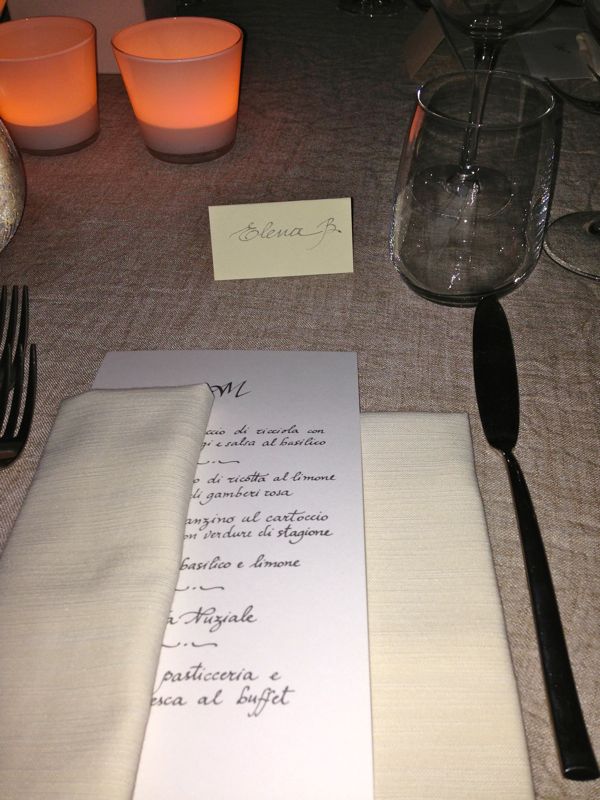 Elena B.
M
di ricciola con
e salsa al basilico
di ricotta al limone
di gamberi rosa
al cartoccio
verdure di stagione
basilico e limone
Nuziale
pasticceria e
al buffet